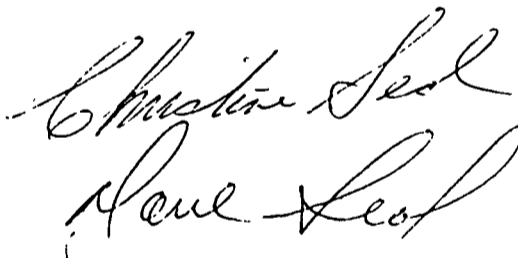 Christine Seol
Dave Seol